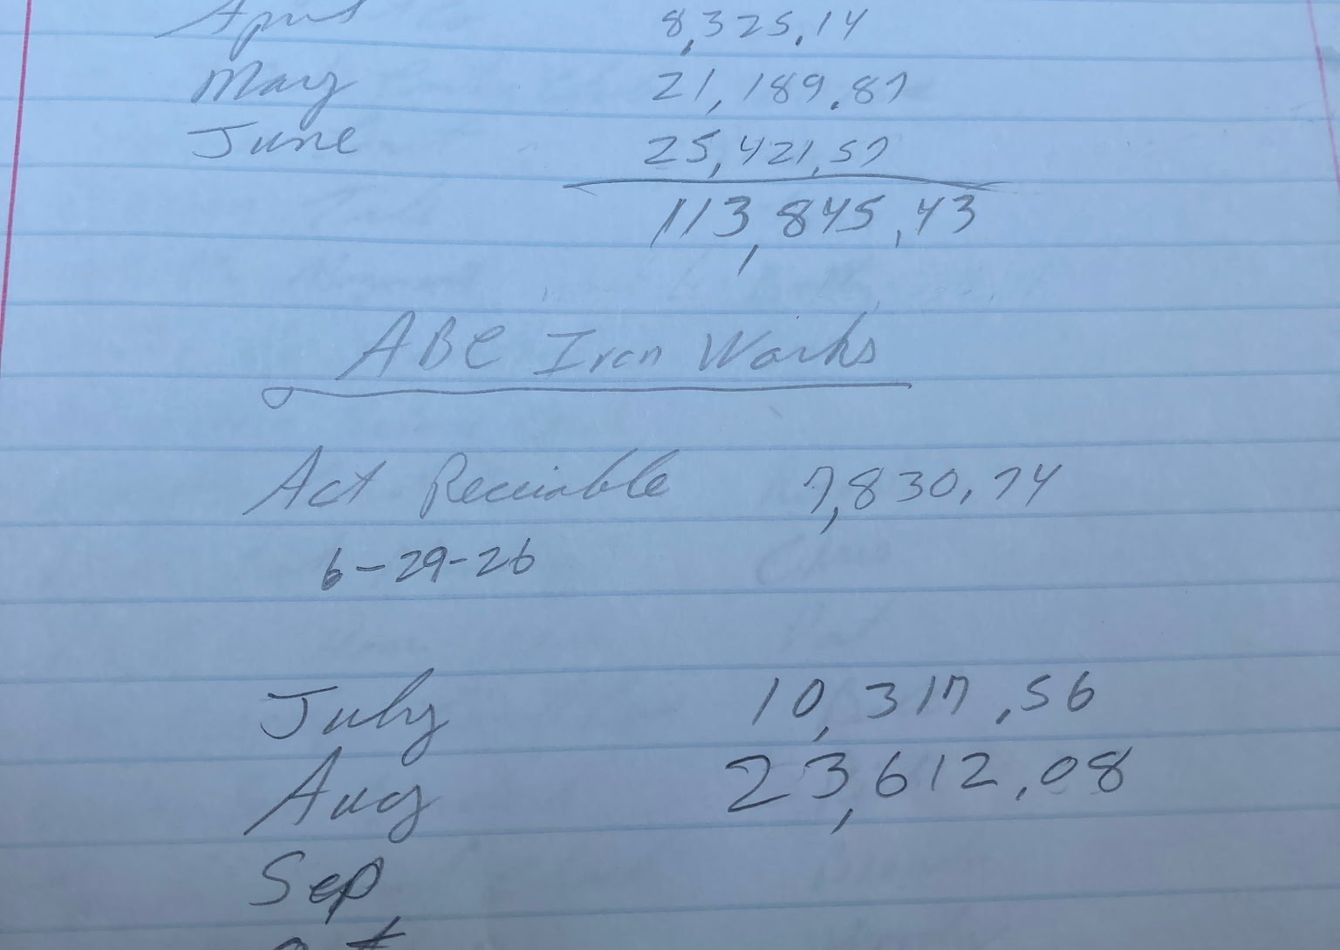 April 8,325.14
May 21,189.87
June 25,421.57
113,845.43
ABC Iron Works
Act Receiable 7,830.74
6-29-26
July 10,317.56
Aug 23,612.08
Sep
Oct